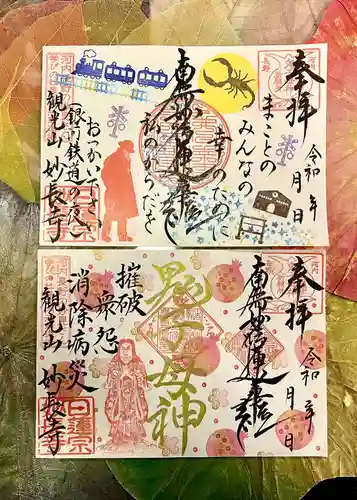 奉拝
令和 年 月 日
まことの
みんなの
幸のために
南無妙法蓮華経
私のからだを
おっかいください
(銀河鉄道の夜)
観光山 妙長寺
日蓮宗
奉拝
令和 年 月 日
南無妙法蓮華経
鬼子母神
摧破
衆怨
消除病災
観光山 妙長寺
日蓮宗